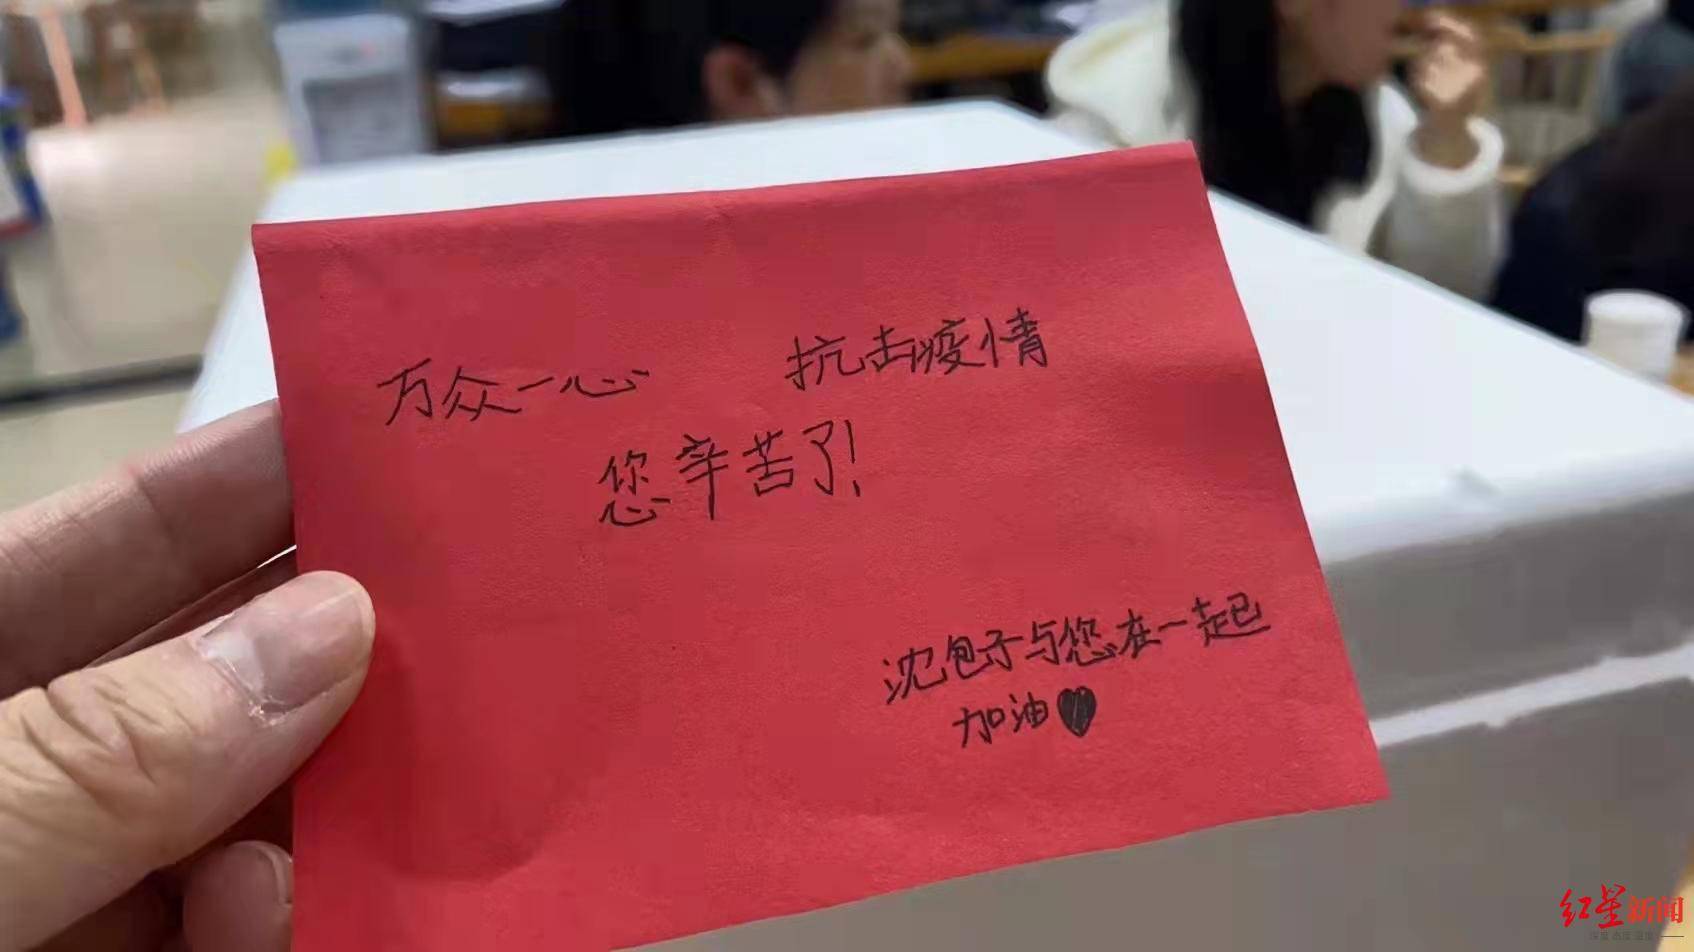 万众一心 抗击疫情
您辛苦了!
沈包子与您在一起
加油♥
红星新闻